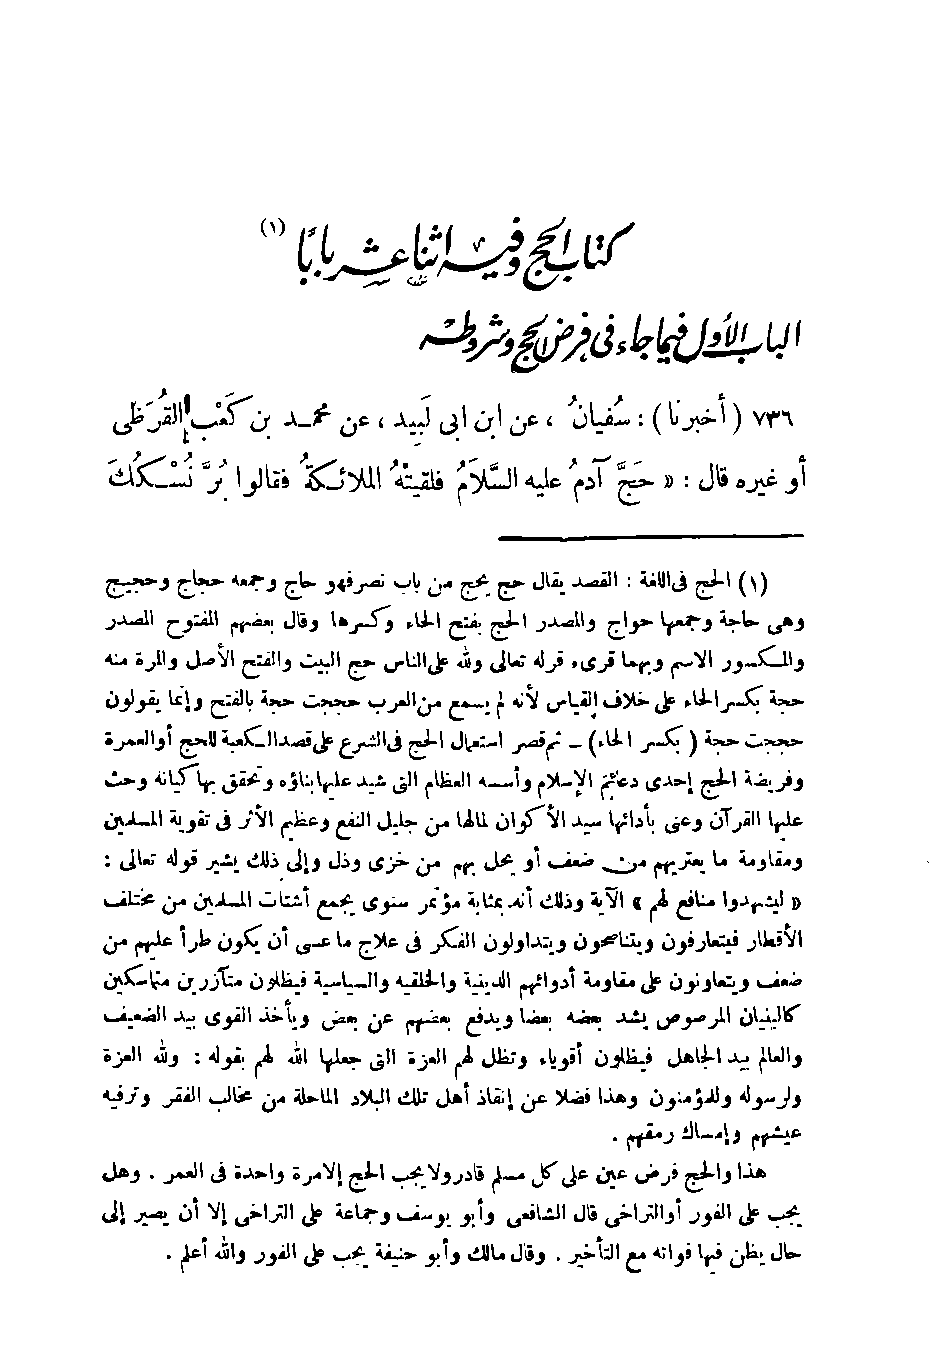 كتاب الحج وفيه اثنا عشر بابًا (١)
الباب الأول فيما جاء فى فرض الحج وشروطه
٧٣٦ (أخبرنا) : سُفيانُ ، عن ابن ابى لَبِيد ، عن محمد بن كَعْب القُرَظى
أو غيره قال : « حَجَّ آدمُ عليه السَّلَامُ فلقيتْهُ الملائكةُ فقالوا بُرَّ نُسْكُكَ
(١) الحج فى اللغة : القصد يقال حج يحج من باب نصر فهو حاج وجمعه حجاج وحجيج
وهى حاجة وجمعها حواج والمصدر الحج بفتح الحاء وكسرها وقال بعضهم المفتوح المصدر
والمكسور الاسم وبهما قرىء قوله تعالى ولله على الناس حج البيت والفتح الأصل والمرة منه
حجة بكسر الحاء على خلاف القياس لأنه لم يسمع من العرب حججت حجة بالفتح وإنما يقولون
حججت حجة ( بكسر الحاء ) - ثم قصر استعمال الحج فى الشرع على قصد الكعبة للحج أو العمرة
وفريضة الحج إحدى دعائم الإسلام وأسسه العظام التى شيد عليها بناؤه وتحقق بها كيانه وحث
عليها القرآن وعنى بأدائها سيد الأكوان لمالها من جليل النفع وعظيم الأثر فى تقوية المسلمين
ومقاومة ما يعتريهم من ضعف أو يحل بهم من خزى وذل وإلى ذلك يشير قوله تعالى :
« ليشهدوا منافع لهم » الآية وذلك أنه بمثابة مؤتمر سنوى يجمع أشتات المسلمين من مختلف
الأقطار فيتعارفون ويتناصحون ويتداولون الفكر فى علاج ما عسى أن يكون طرأ عليهم من
ضعف ويتعاونون على مقاومة أدوائهم الدينية والخلقيه والسياسية فيظلون متآزرين متماسكين
كالبنيان المرصوص يشد بعضه بعضا ويدفع بعضهم عن بعض ويأخذ القوى بيد الضعيف
والعالم بيد الجاهل فيظلون أقوياء وتظل لهم العزة التى جعلها الله لهم بقوله : ولله العزة
ولرسوله وللمؤمنون وهذا فضلا عن إنقاذ أهل تلك البلاد الماحلة من مخالب الفقر وترفيه
عيشهم وإمساك رمقهم .
هذا والحج فرض عين على كل مسلم قادر ولا يجب الحج إلا مرة واحدة فى العمر . وهل
يجب على الفور أو التراخى قال الشافعى وأبو يوسف وجماعة على التراخى إلا أن يصير إلى
حال يظن فيها فواته مع التأخير . وقال مالك وأبو حنيفة يجب على الفور والله أعلم .